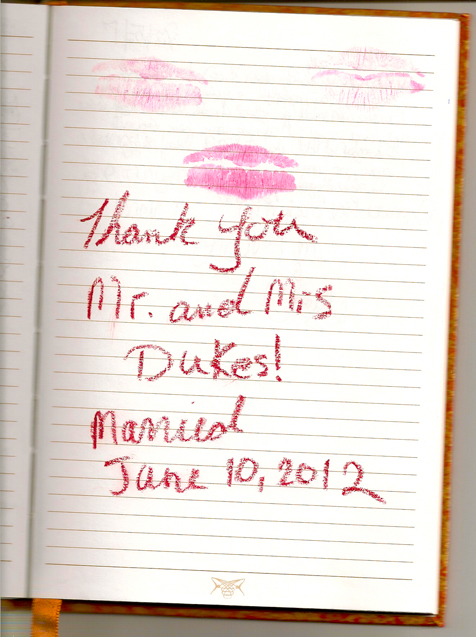 Thank you
Mr. and Mrs
Dukes!
Married
June 10, 2012